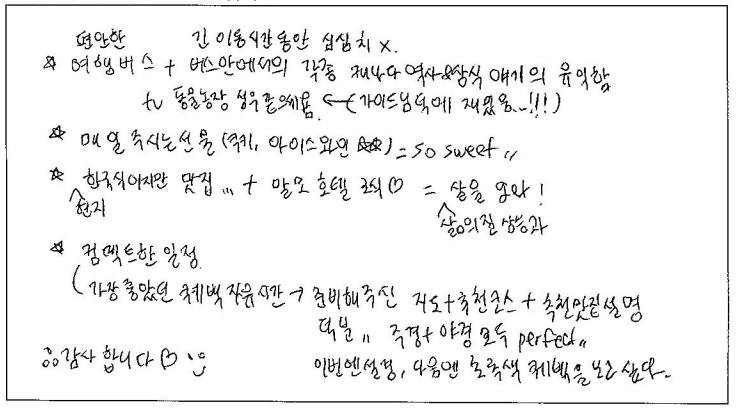 편안한 긴 이동시간동안 심심치 x.
☆ 여행버스 + 버스안에서의 각종 캐나다 역사&상식 얘기의 유익함
tv 동물농장 성우같으세용 ←(가이드님덕에 재밌음~!!!)
☆ 매일 주시는 선물 (쿠키, 아이스와인 ☆☆) = so sweet〃
☆ 한국식이지만 맛집 … + 말모 호텔 조식♡ =
현지
삶의질 상승과
☆ 컴팩트한 일정
(가장 좋았던 퀘벡 자유시간 → 준비해주신 지도+추천코스 + 추천맛집설명
덕분〃 주경+야경 모두 perfect〃
감사합니다♡
이번엔설경, 다음엔 초록색 퀘벡을 보고 싶다.